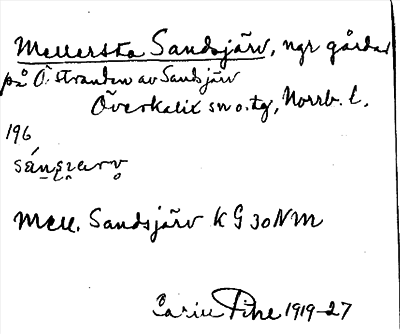 Mellersta Sandsjärv, ngr gårdar
på Ö. stranden av Sandsjärv
Överkalix sn o. tg, Norrb. l.
196
Mell. Sandsjärv K G 30 NM
Carin Pihl 1919-27